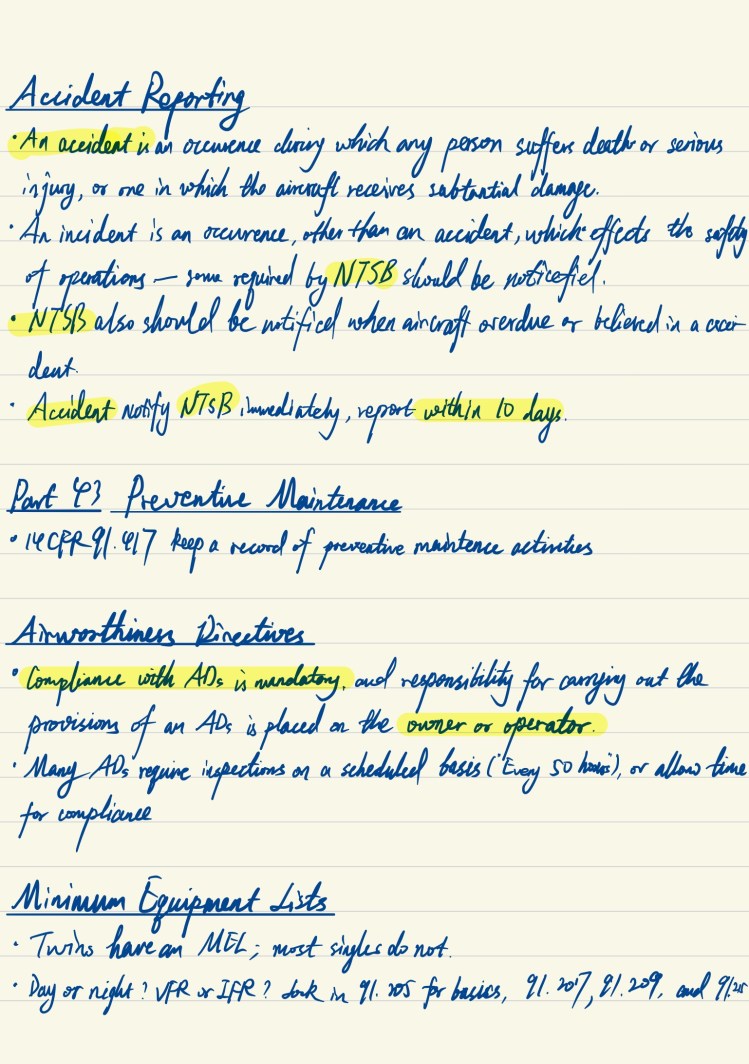 Accident Reporting
• An accident is an occurence during which any person suffers death or serious
injury, or one in which the aircraft receives substantial damage.
• An incident is an occurrence, other than an accident, which effects the safety
of operations — some required by NTSB should be noticefied.
• NTSB also should be notified when aircraft overdue or believed in a acci-
dent.
• Accident notify NTSB immediately, report within 10 days.
Part 43 Preventive Maintenance
• 14 CFR 91.417 keep a record of preventive maintence activities
Airworthiness Directives
• Compliance with ADs is mandatory, and responsibility for carrying out the
provisions of an ADs is placed on the owner or operator.
• Many ADs require inspections on a scheduled basis ("Every 50 hours"), or allow time
for compliance
Minimum Equipment Lists
• Twins have an MEL; most singles do not.
• Day or night? VFR or IFR? look in 91.205 for basics, 91.207, 91.209, and